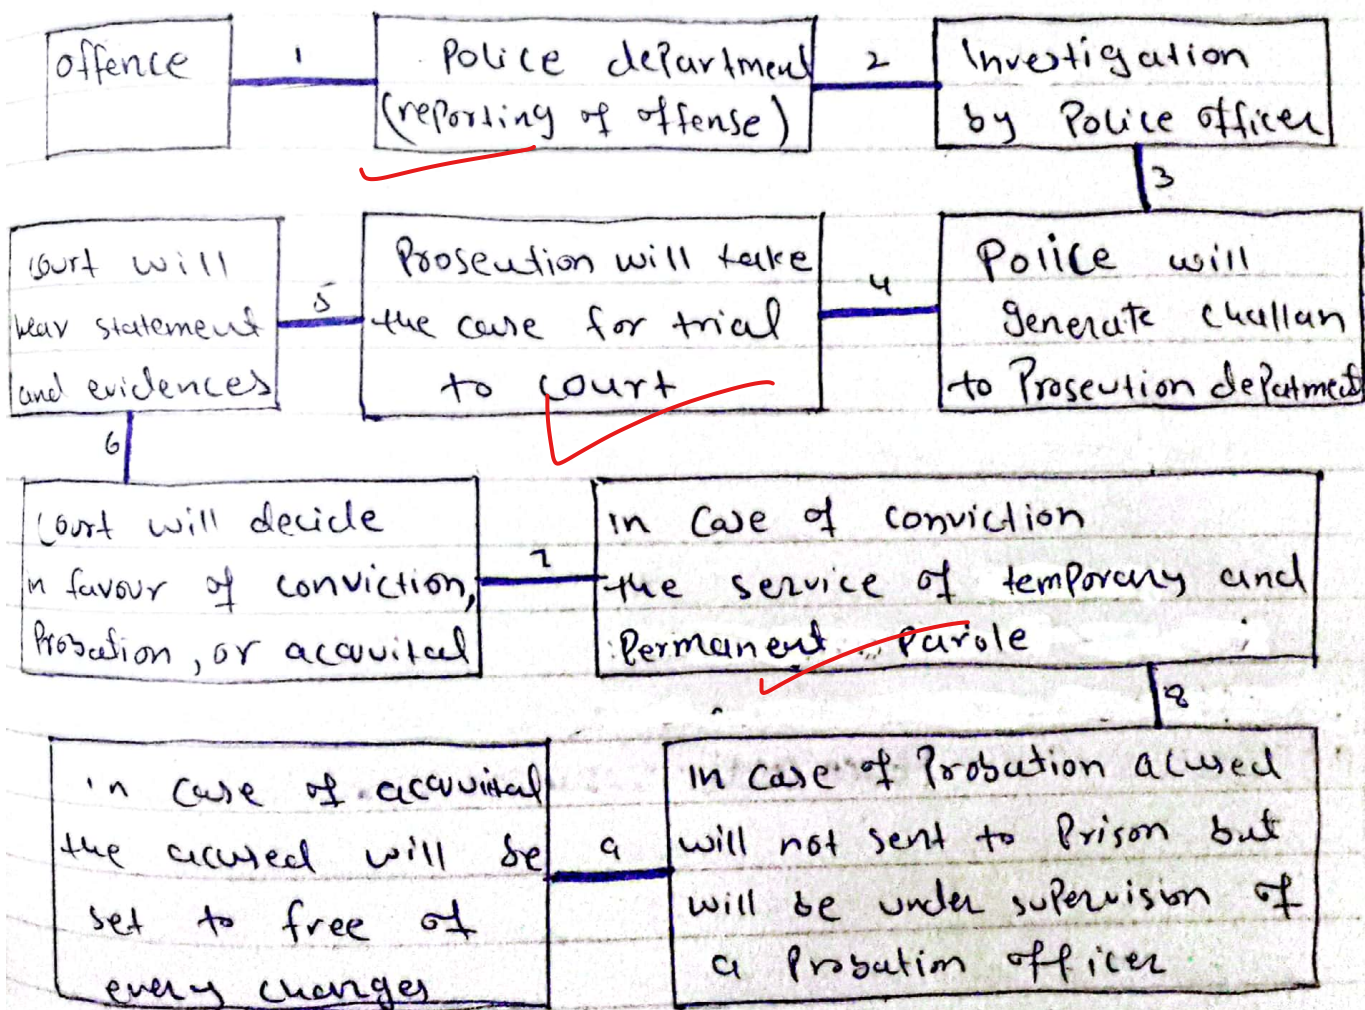 offence
1
Police department
(reporting of offense)
2
Investigation
by Police officer
3
Police will
generate challan
to Proseution depatment
4
Proseution will take
the case for trial
to court
5
court will
hear statement
and evidences
6
court will decide
in favour of conviction,
Probation, or acquital
7
in case of conviction
the service of temporary and
Permanent Parole
8
in case of Probation acused
will not sent to Prison but
will be under supervision of
a Probation officer
9
in case of acquital
the acused will be
set to free of
every charges